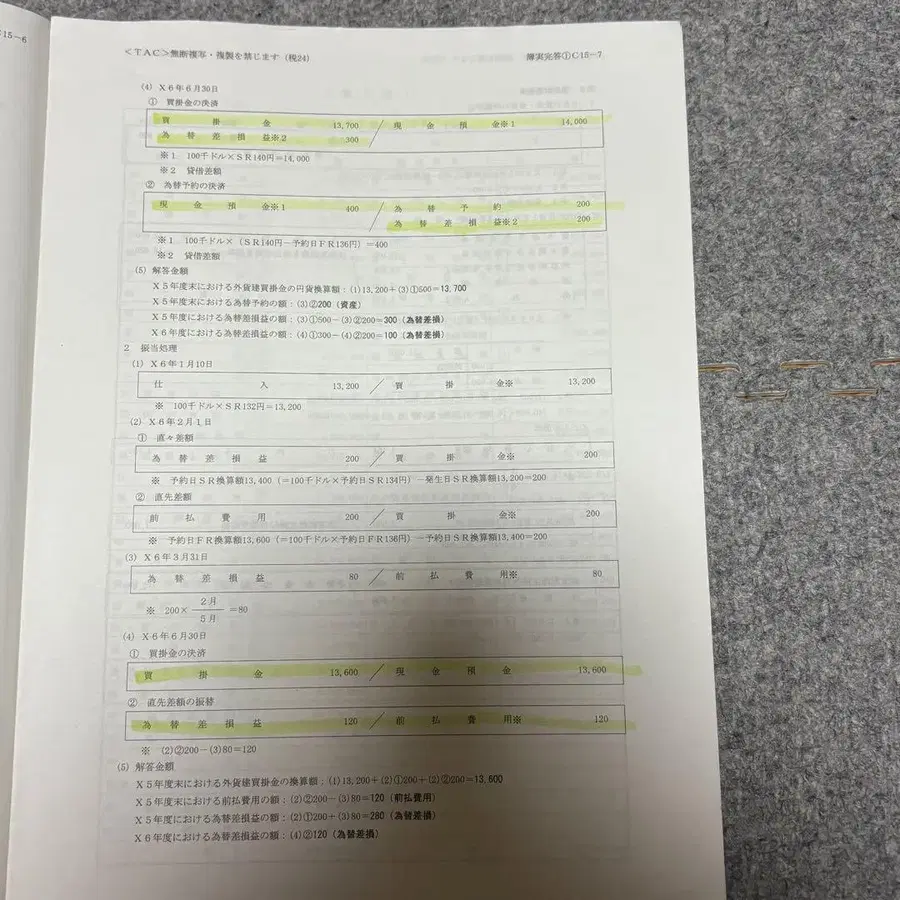 C15～6
＜TAC＞無断複写・複製を禁じます（税24） 簿実完答①C15－7
(4) X6年6月30日
① 買掛金の決済
買掛金 13,700 ／ 現金預金※1 14,000
為替差損益※2 300
※1 100千ドル×SR140円＝14,000
※2 貸借差額
② 為替予約の決済
現金預金※1 400 ／ 為替予約 200
為替差損益※2 200
※1 100千ドル×（SR140円－予約日FR136円）＝400
※2 貸借差額
(5) 解答金額
X5年度末における外貨建買掛金の円貨換算額：(1)13,200＋(3)①500＝13,700
X5年度末における為替予約の額：(3)②200（資産）
X5年度における為替差損益の額：(3)①500－(3)②200＝300（為替差損）
X6年度における為替差損益の額：(4)①300－(4)②200＝100（為替差損）
2 振当処理
(1) X6年1月10日
仕入 13,200 ／ 買掛金※ 13,200
※ 100千ドル×SR132円＝13,200
(2) X6年2月1日
① 直々差額
為替差損益 200 ／ 買掛金※ 200
※ 予約日SR換算額13,400（＝100千ドル×予約日SR134円）－発生日SR換算額13,200＝200
② 直先差額
前払費用 200 ／ 買掛金※ 200
※ 予約日FR換算額13,600（＝100千ドル×予約日FR136円）－予約日SR換算額13,400＝200
(3) X6年3月31日
為替差損益 80 ／ 前払費用※ 80
※ 200×2月/5月＝80
(4) X6年6月30日
① 買掛金の決済
買掛金 13,600 ／ 現金預金 13,600
② 直先差額の振替
為替差損益 120 ／ 前払費用※ 120
※ (2)②200－(3)80＝120
(5) 解答金額
X5年度末における外貨建買掛金の換算額：(1)13,200＋(2)①200＋(2)②200＝13,600
X5年度末における前払費用の額：(2)②200－(3)80＝120（前払費用）
X5年度における為替差損益の額：(2)①200＋(3)80＝280（為替差損）
X6年度における為替差損益の額：(4)②120（為替差損）